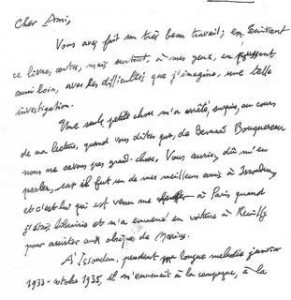 Cher Ami,
Vous avez fait un très beau travail; en écrivant
ce livre, certes, mais surtout, à mes yeux, en poussant
aussi loin, avec les difficultés que j'imagine, une telle
investigation.
Une seule petite chose m'a arrêté, surpris, au cours
de ma lecture, quand vous dites que, de Bernard Bouquereau
nous ne savons pas grand-chose. Vous auriez dû m'en
parler, car il fut un de mes meilleurs amis à Issoudun,
et c'est lui qui est venu me à Paris quand
j'étais libraire et m'a emmené en voiture à Reuilly
pour assister aux obsèques de
A Issoudun, pendant longue maladie janvier
1933-octobre 1935, il m'emmenait à la campagne, à la